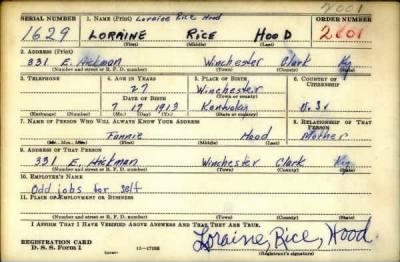 2001
SERIAL NUMBER 1. NAME (Print) Loraine Rice Hood ORDER NUMBER
1629 LORAINE RICE HOOD 2001
(First) (Middle) (Last)
2. ADDRESS (Print)
331 E. Hickman Winchester Clark Ky
(Number and street or R. F. D. number) (Town) (County) (State)
3. TELEPHONE 4. AGE IN YEARS 5. PLACE OF BIRTH 6. COUNTRY OF CITIZENSHIP
27 Winchester
DATE OF BIRTH (Town or county)
7 17 1913 Kentucky U.S.
(Exchange) (No.) (Mo.) (Day) (Yr.) (State or country)
7. NAME OF PERSON WHO WILL ALWAYS KNOW YOUR ADDRESS 8. RELATIONSHIP OF THAT PERSON
Fannie Hood Mother
(Mr., Mrs., Miss) (First) (Middle) (Last)
9. ADDRESS OF THAT PERSON
331 E. Hickman Winchester Clark Ky
(Number and street or R. F. D. number) (Town) (County) (State)
10. EMPLOYER'S NAME
Odd jobs for self
11. PLACE OF EMPLOYMENT OR BUSINESS
(Number and street or R. F. D. number) (Town) (County) (State)
I AFFIRM THAT I HAVE VERIFIED ABOVE ANSWERS AND THAT THEY ARE TRUE.
REGISTRATION CARD Loraine, Rice, Hood.
D. S. S. Form 1 (Registrant's signature)